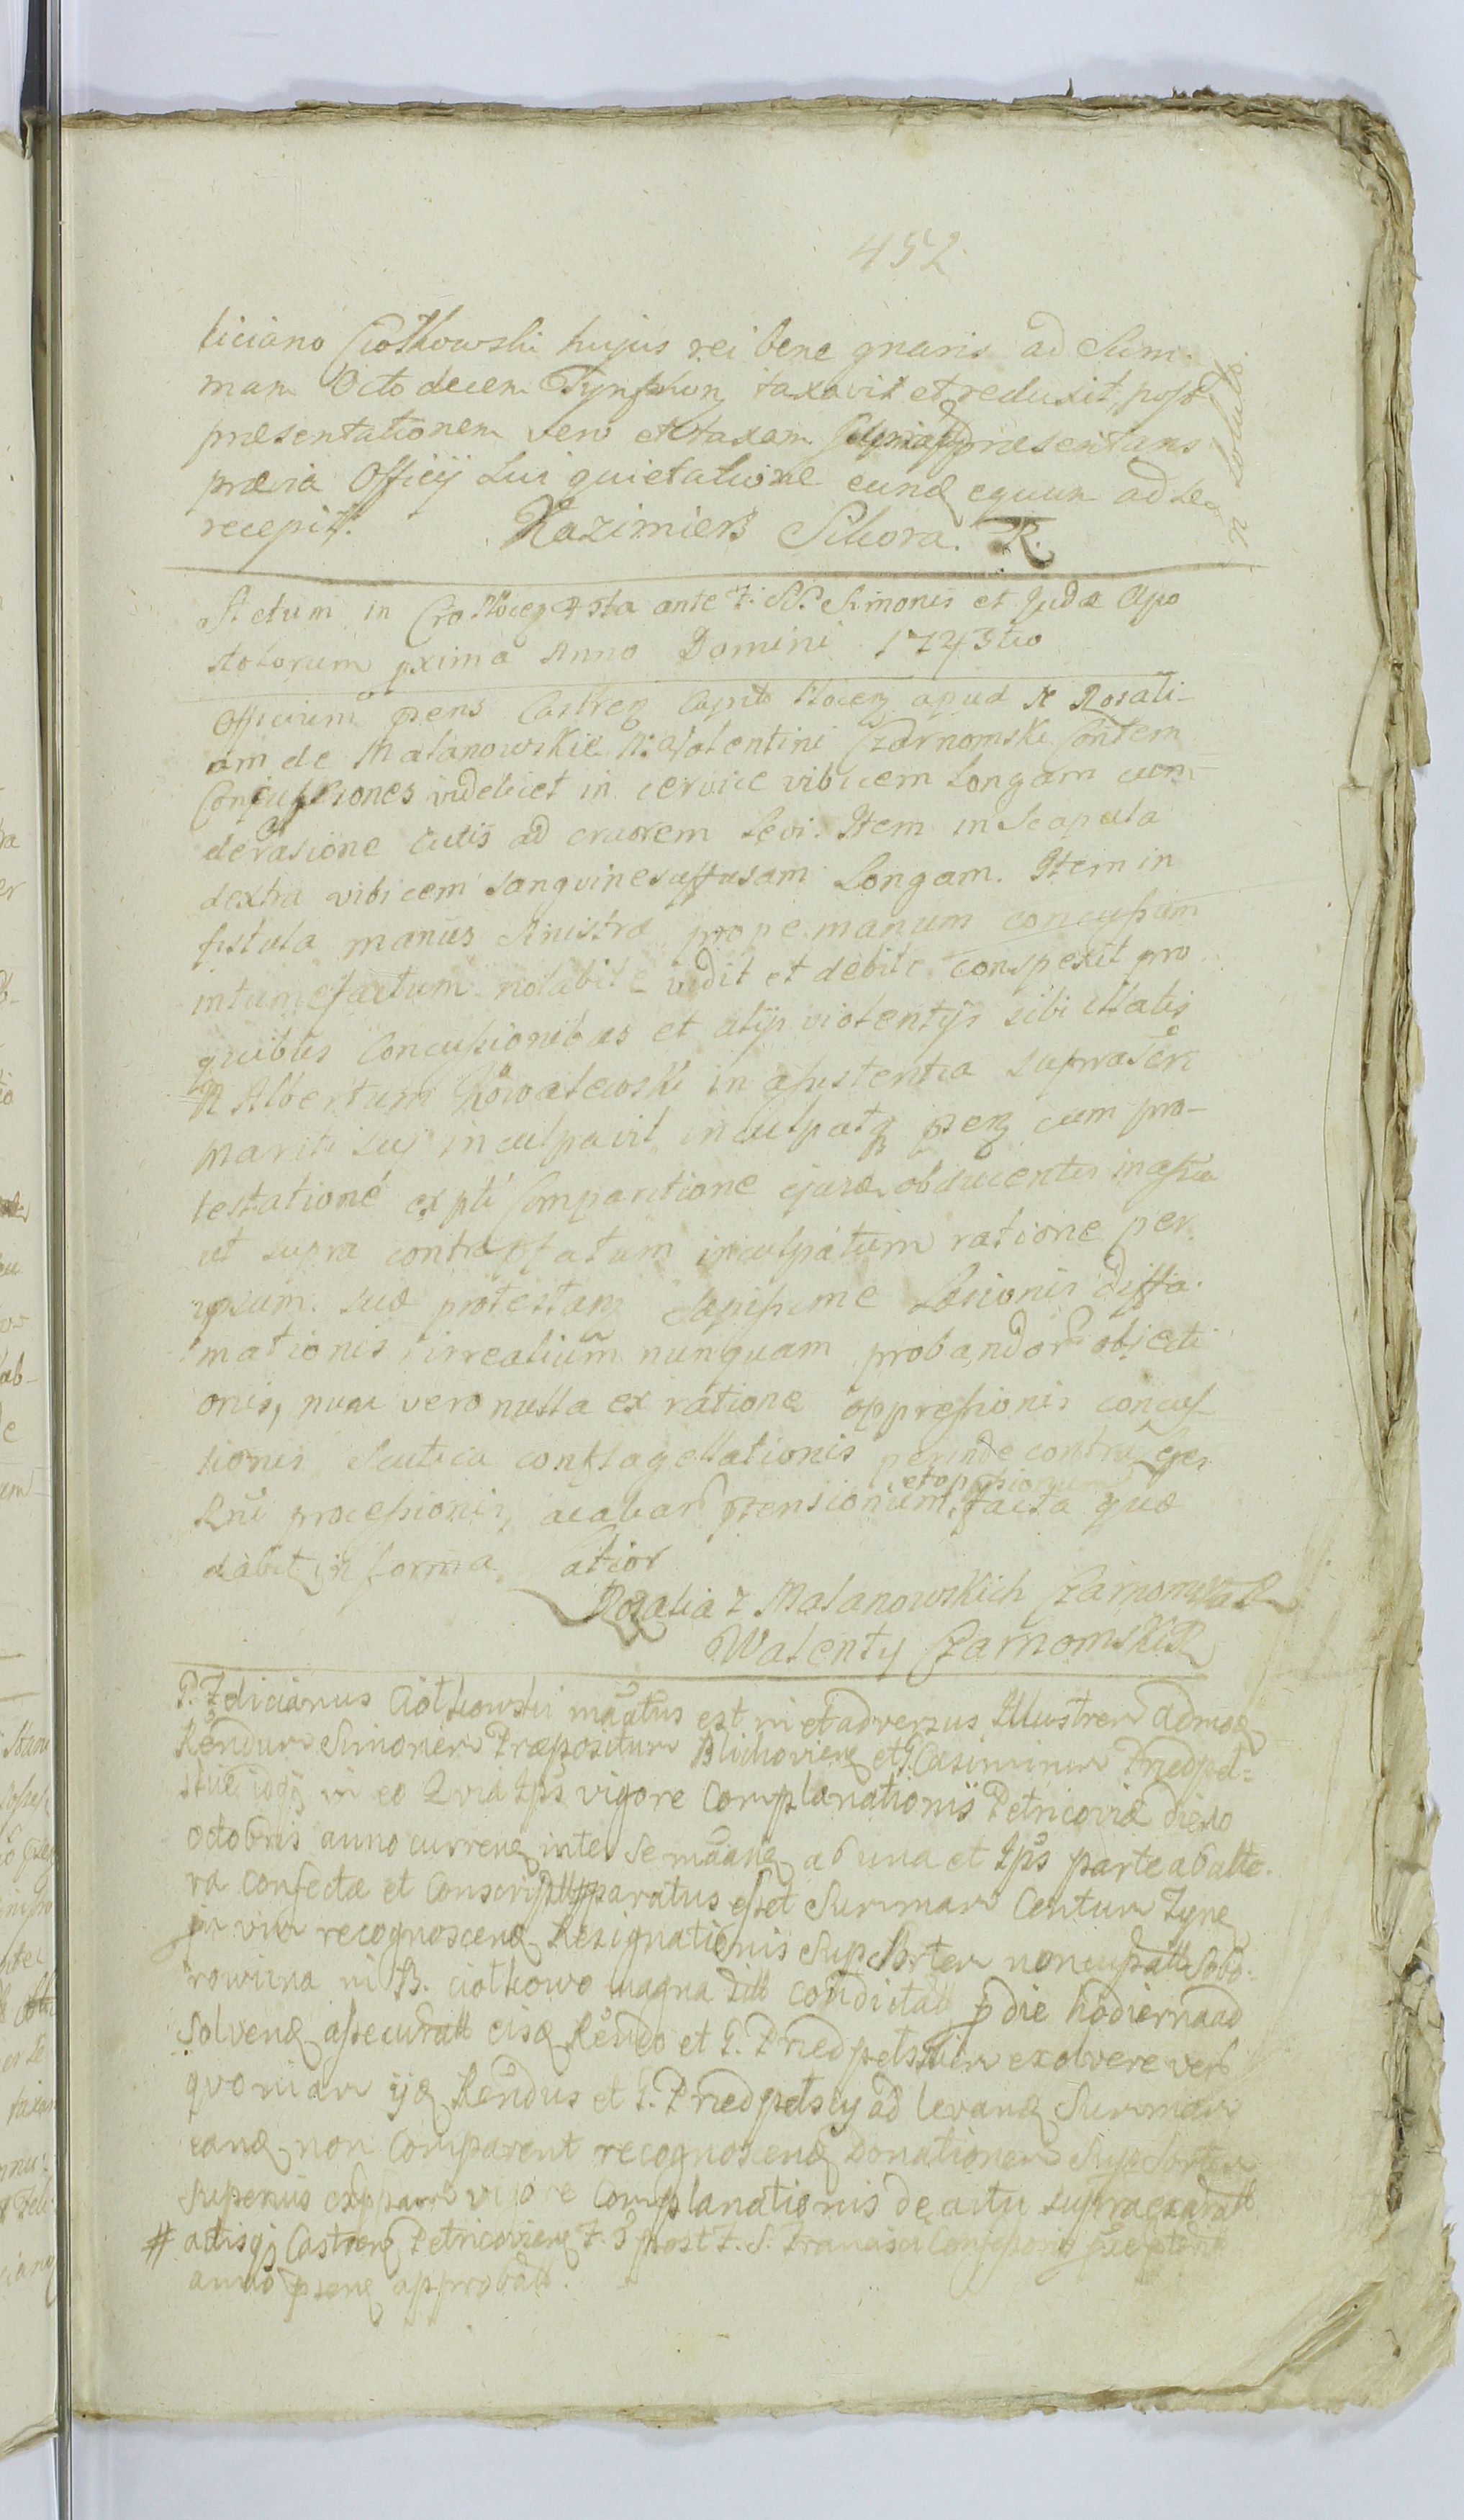 452
liciano Ciołkowski hujus rei bene gnaris ad Sum-
mam Octodecem Tynphon taxavit et reduxit, post
præsentationem vero et taxam præsentans
prævia Officij sui quietatione eund equum ad se
recepit. Kazimierz Sikora. R.
solutæ
Actum in Cro Płocen 4ta ante F. SS. Simonis et Judæ Apo
stolorum pxima Anno Domini 1743tio
Officium præns Castren Capitl Płocen apud N Rosali-
am de Malanowskie N. Valentini Czarnomski Contem
Concussiones videlicet in cervice vibicem Longam cum
derasione cutis ad cruorem Levi. Item in Scapula
dextra vibicem sangvine suffusam Longam. Item in
fistula manus sinistræ prope manum concussum
intumefactum notabile vidit et debite conspexit pro
quibus Concussionibus et alijs violentijs sibi illatis
N Albertum Kowalewski in assistentia suprascr
mariti sui inculpavit inculpatq pren cum pro-
testatione ex pte Comparitione ejusd obducentis in assia
ut supra contra pfatum inculpatum ratione per
ipsum. sue protestan sæpissime Læsionis diffa-
mationis irrealium nunquam probandor objecti
onis, nunc vero nulla ex ratione oppressionis concus-
sionis Scutica conflagellationis perinde contra Leges
Rni processionis, aliar prensionum et oppressionum facta quæ
dabit in forma latior
Rozalia z Malanowskich Czarnomska R
Walenty Czarnomski R
G. Felicianus Ciołkowski mātus est in et adversus Illustrem admod
Rendum Simonem Præpositum Blichovien et G. Casimirum Przedpeł-
skie idq in eo Quia Ips vigore Complanationis Petricoviæ die 10
Octobris anno curren inter se māan ab una et Ips parte ab alte-
ra confectæ et Conscript paratus esset Summam Centum Tynf
in vim recognoscend Resignationis Sup Sortem noncupatt Sobo-
rowizna in B. Ciołkowo magna Sitt condictatt p die hodierna ad
solvend assecuratt eisd Rendo et G. Przedpelski exolvere vero
quoniam ijd Rendus et G. Przedpelscy ad levand Summam
eand non Comparent recognoscend Donationem Sup Sortem
Superius expssam vigore Complanationis de actu supra exaratt
# actisq Castren Petricovien F. 3 post F. S. Francisci Confessoris
anno præn approbatt.